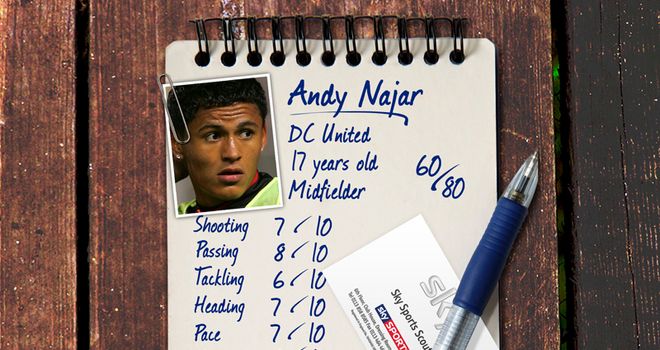 Andy Najar
DC United
17 years old
Midfielder
60/80
Shooting 7/10
Passing 8/10
Tackling 6/10
Heading 7/10
Pace 7/10
sky
Sky Sports Scout
sky SPORTS